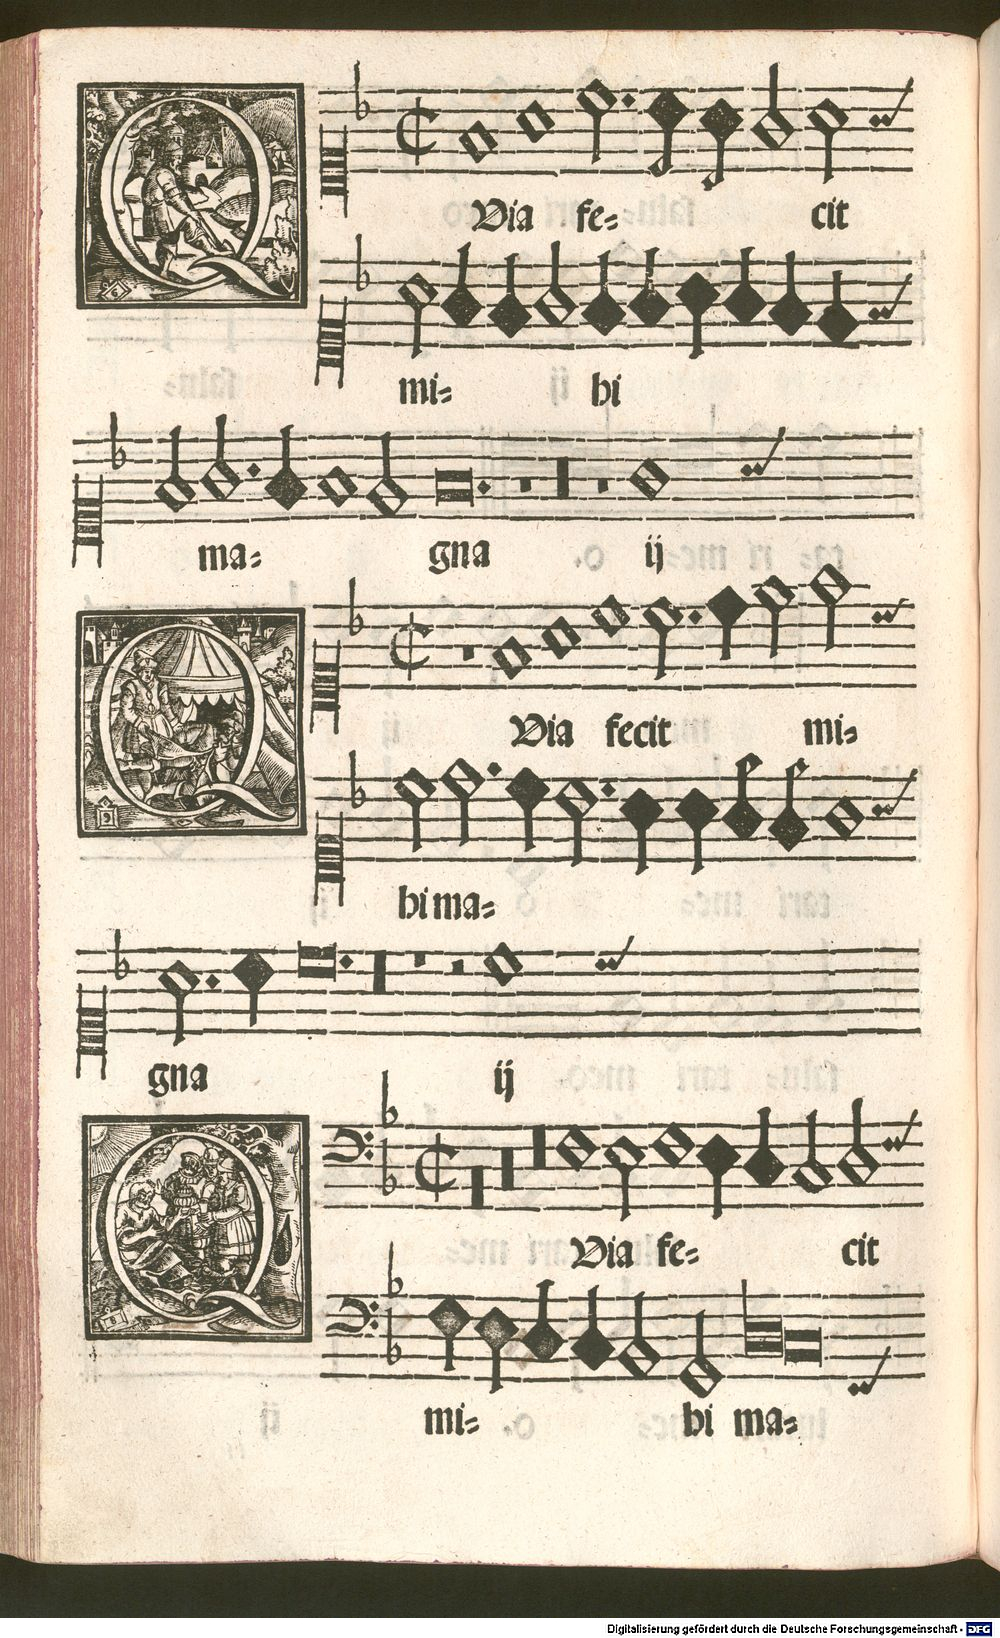 QVia fe= cit
mi= ij hi
ma= gna ij
QVia fecit mi=
hi ma=
gna ij
QVia fe= cit
mi= hi ma=
Digitalisierung gefördert durch die Deutsche Forschungsgemeinschaft - DFG